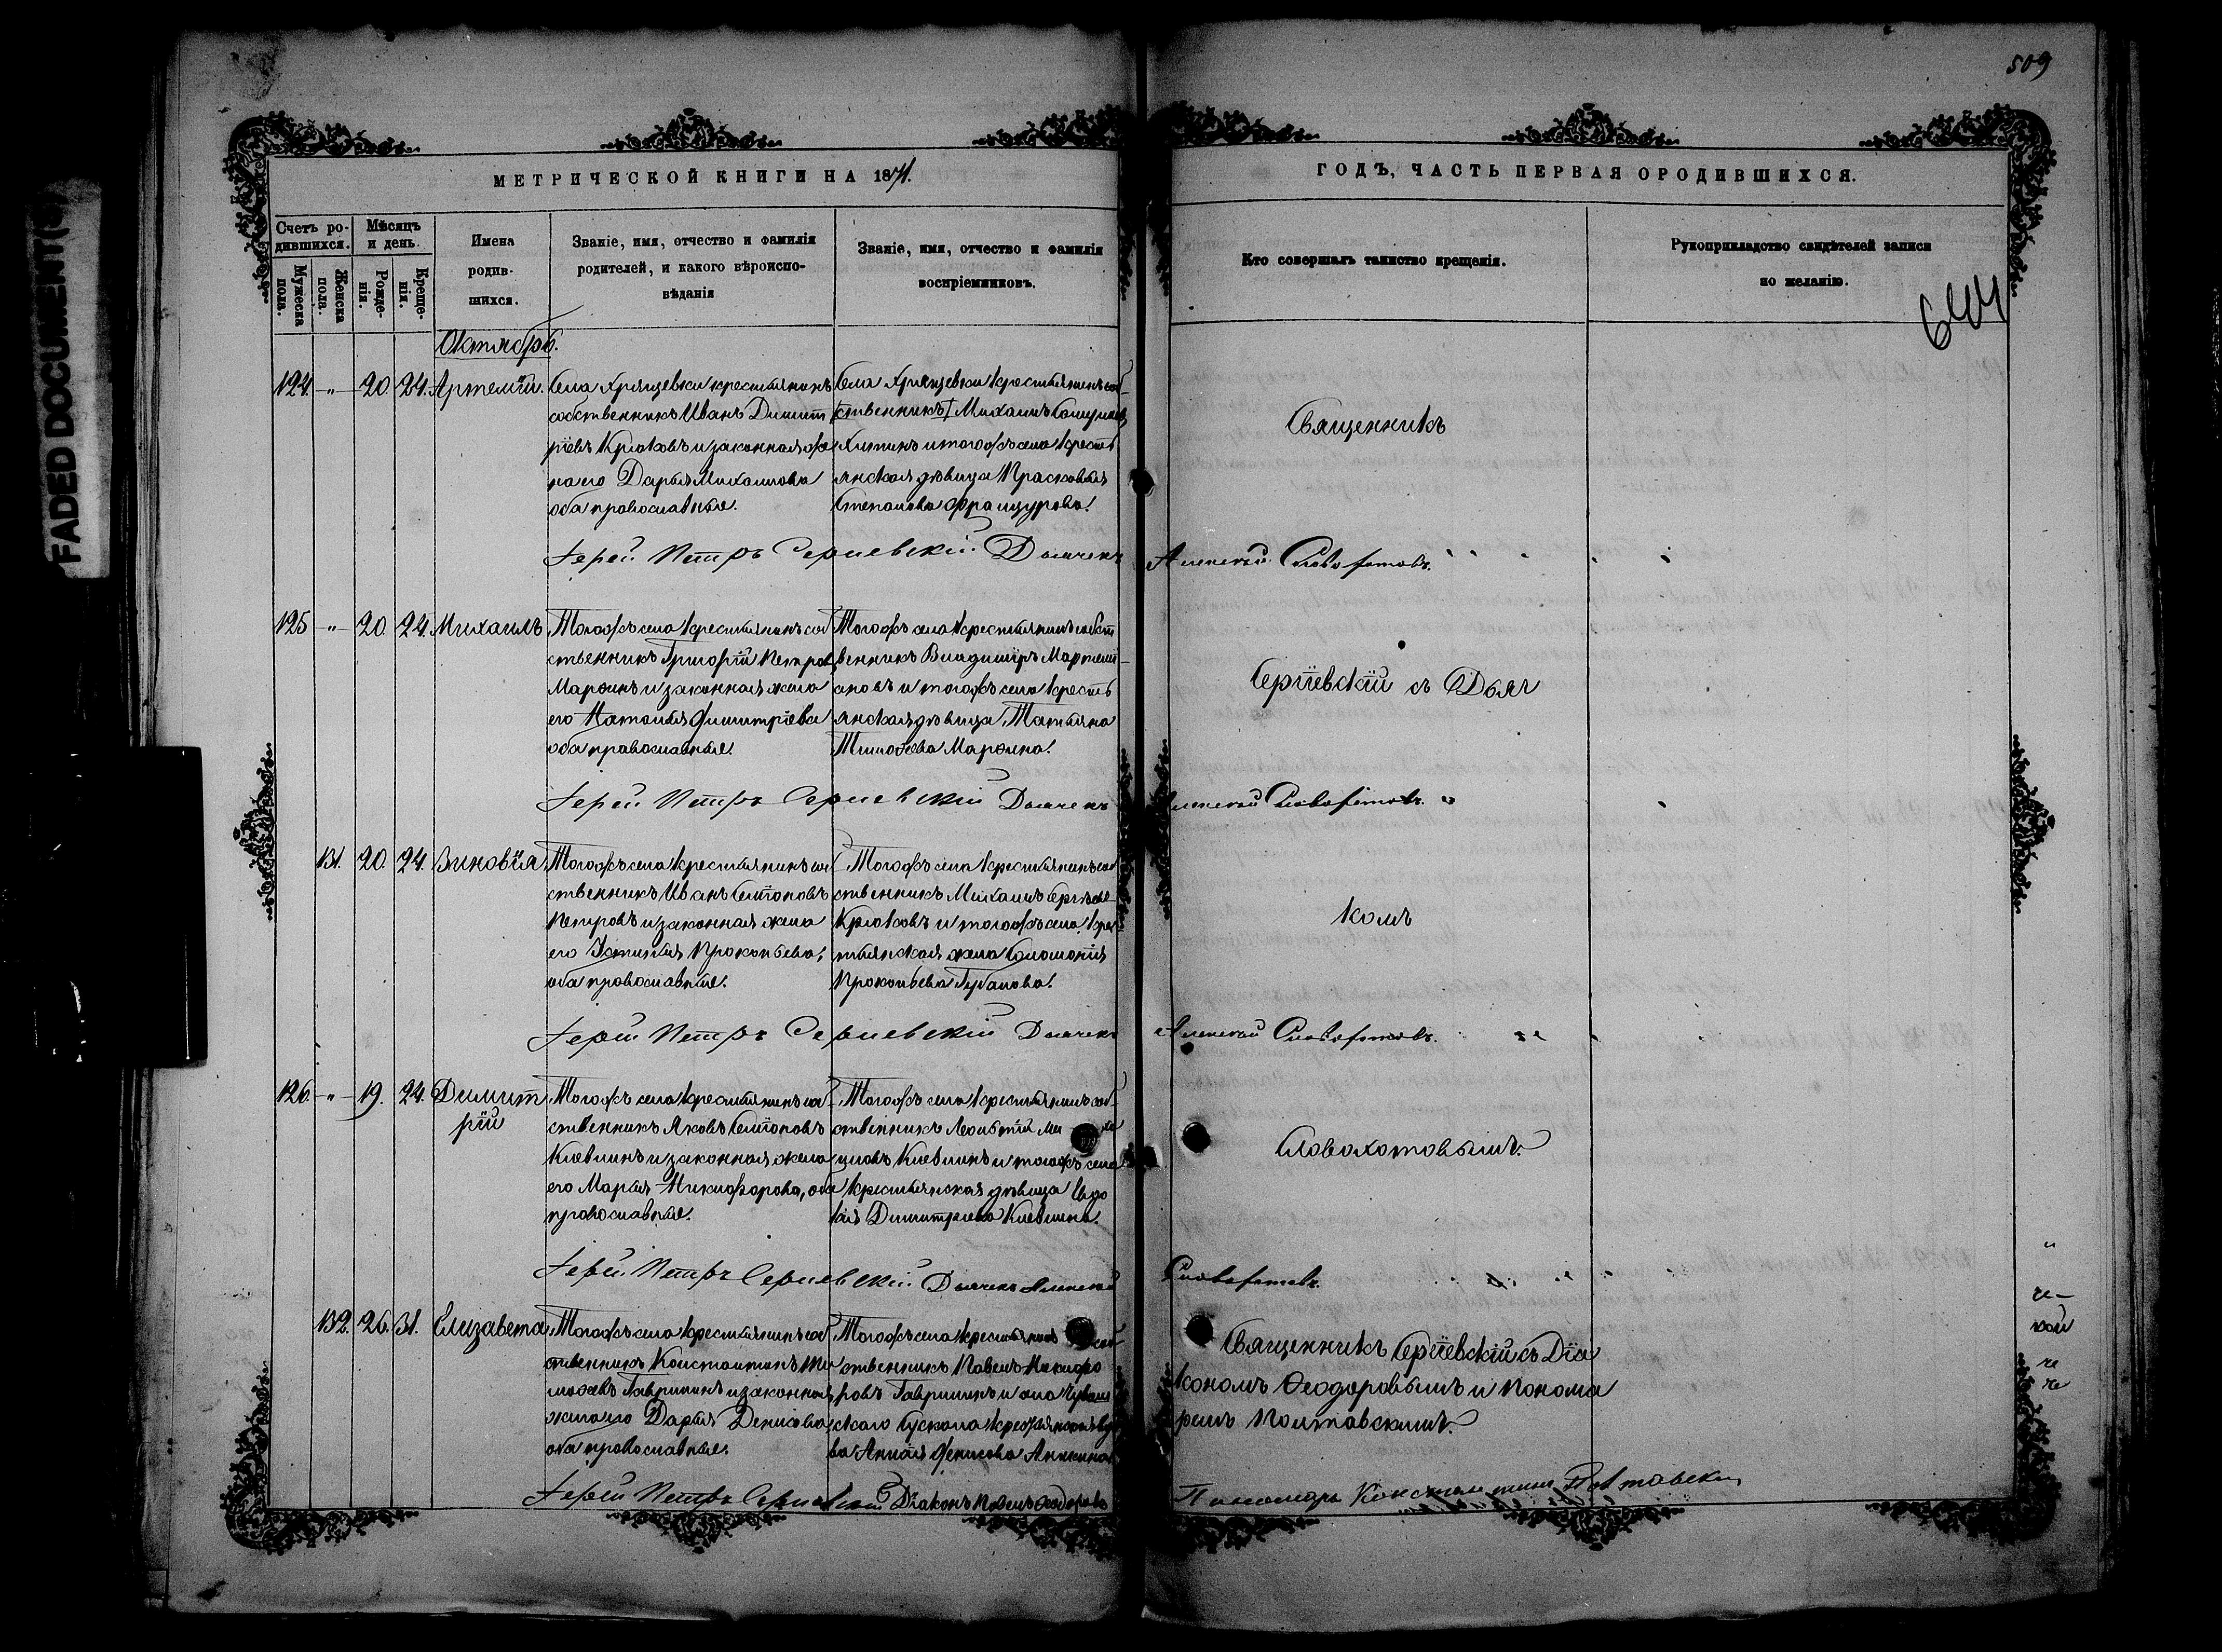 FADED DOCUMENT(S)
509
МЕТРИЧЕСКОЙ КНИГИ НА 1871.
ГОДЪ, ЧАСТЬ ПЕРВАЯ О РОДИВШИХСЯ.
Счетъ ро-
дившихся.
Мужеска
пола.
Женска
пола.
Мѣсяцъ
и день.
Рожде-
нія.
Креще-
нія.
Имена
родив-
шихся.
Званіе, имя, отчество и фамилія
родителей, и какого вѣроиспо-
вѣданія
Званіе, имя, отчество и фамилія
воспріемниковъ.
Кто совершалъ таинство крещенія.
Рукоприкладство свидѣтелей записи
по желанію.
644
Октябрь.
124. " 20. 24. Артемій.
Села Хрящевки крестьянинъ
собственникъ Иванъ Димит
ріевъ Крюковъ и законная же
на его Дарья Михаилова
оба православные.
Села Хрящевки крестьянинъ соб
ственникъ Михаилъ
и тогожъ села кресть
янская дѣвица Прасковья
Степанова
Священникъ
Іерей Петръ Сергіевскій. Дьячекъ Алексей Словохотовъ.
125 " 20. 24. Михаилъ
Тогожъ села крестьянинъ соб
ственникъ Григорій Петровъ
Марфинъ и законная жена
его Наталья Димитріева
оба православные.
Тогожъ села крестьянинъ собст
венникъ Владиміръ
и тогожъ села кресть
янская дѣвица Татьяна
Тимофеева Марфина.
Сергіевскій съ Дьяч
Іерей Петръ Сергіевскій Дьячекъ Алексей Словохотовъ.
131. 20. 24. Зиновія
Тогожъ села крестьянинъ соб
ственникъ Иванъ Семіоновъ
Петровъ и законная жена
его Устинья Прокопьева,
оба православные.
Тогожъ села крестьянинъ соб
ственникъ Михаилъ Сергѣевъ
Крюковъ и тогожъ села крес
тьянская жена Соломонія
Прокопьева Губанова.
комъ
Іерей Петръ Сергіевскій Дьячекъ Алексей Словохотовъ.
126. " 19. 24. Димит
рій
Тогожъ села крестьянинъ соб
ственникъ Яковъ Семіоновъ
Клевлинъ и законная жена
его Марья Никифорова, оба
православные.
Тогожъ села крестьянинъ соб
ственникъ Леонтій
Клевлинъ и тогожъ села
крестьянская дѣвица
Димитріева Клевлина.
Словохотовымъ.
Іерей Петръ Сергіевскій. Дьячекъ Алексей Словохотовъ.
132. 26. 31. Елизавета
Тогожъ села крестьянинъ соб
ственникъ Константинъ Ти
мофеевъ Гаврилинъ и законная
жена его Дарья Денисова
оба православные.
Тогожъ села крестьянинъ соб
ственникъ Павелъ Никифо
ровъ Гаврилинъ и села
скаго крестьянская вдо
ва Денисова Аникина
Священникъ Сергіевскій съ Діа
кономъ Ѳеодоровымъ и Понома
ремъ Полтавскимъ.
Іерей Петръ Сергіевскій Діаконъ Павелъ Ѳеодоровъ Пономарь Константинъ Полтавскій